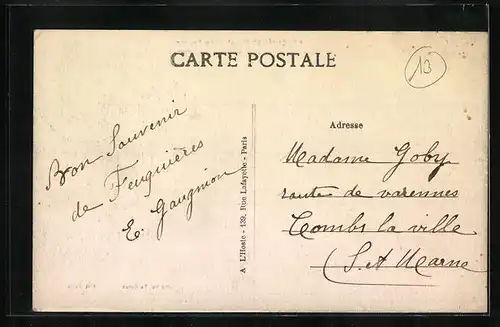 CARTE POSTALE
13
Bon Souvenir
de Feuquières
E. Gaugnion
A L'Hoste - 139, Rue Lafayette - Paris
Adresse
Madame Goby
route de varennes
Combs la ville
S. et Marne